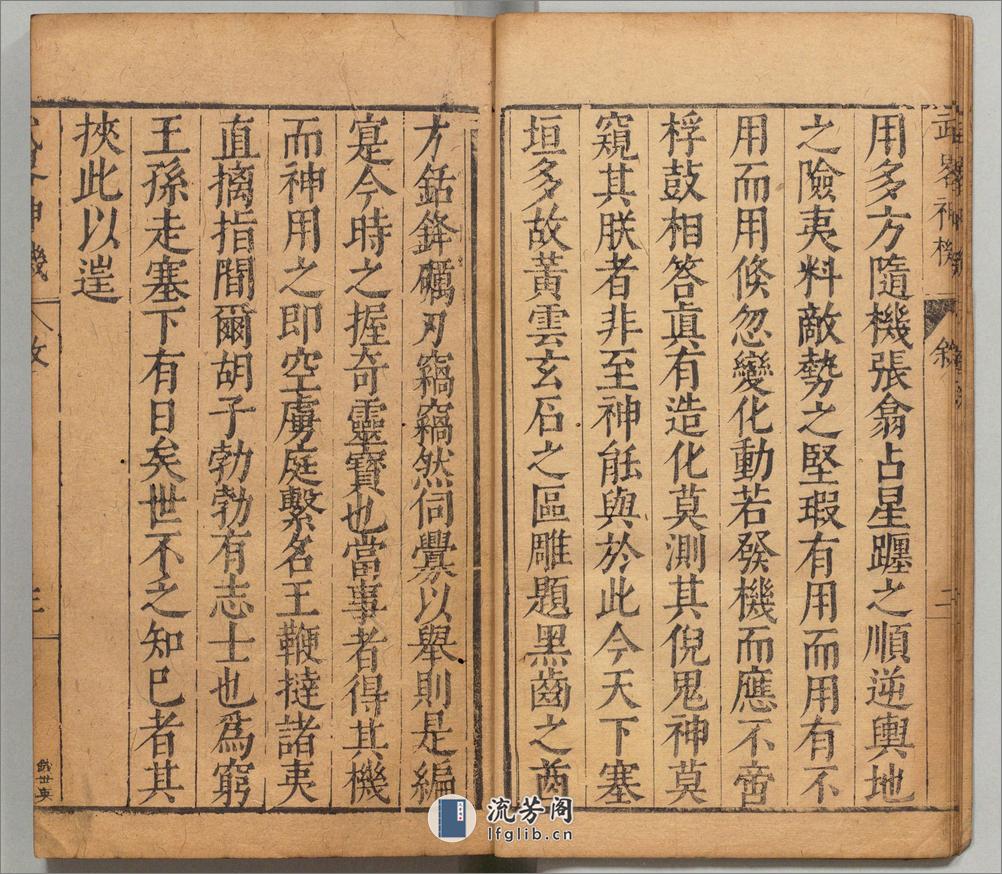 武畧神機
敘
二
用多方隨機張翕占星躔之順逆輿地
之險夷料敵勢之堅瑕有用而用有不
用而用倏忽變化動若發機而應不啻
桴鼓相答眞有造化莫測其倪鬼神莫
窺其朕者非至神能與於此今天下塞
垣多故黃雲玄石之區雕題黑齒之酋
方銛鋒礪刃竊竊然伺釁以舉則是編
寔今時之握奇靈寶也當事者得其機
而神用之即空虜庭繫名王鞭撻諸夷
直摛指間爾胡子勃勃有志士也爲窮
王孫走塞下有日矣世不之知已者其
挾此以逞
流芳阁
lfglib.cn